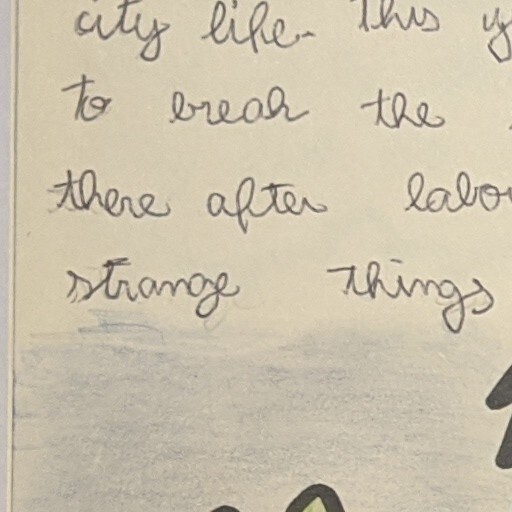 city life. This
to break the
there after
strange things